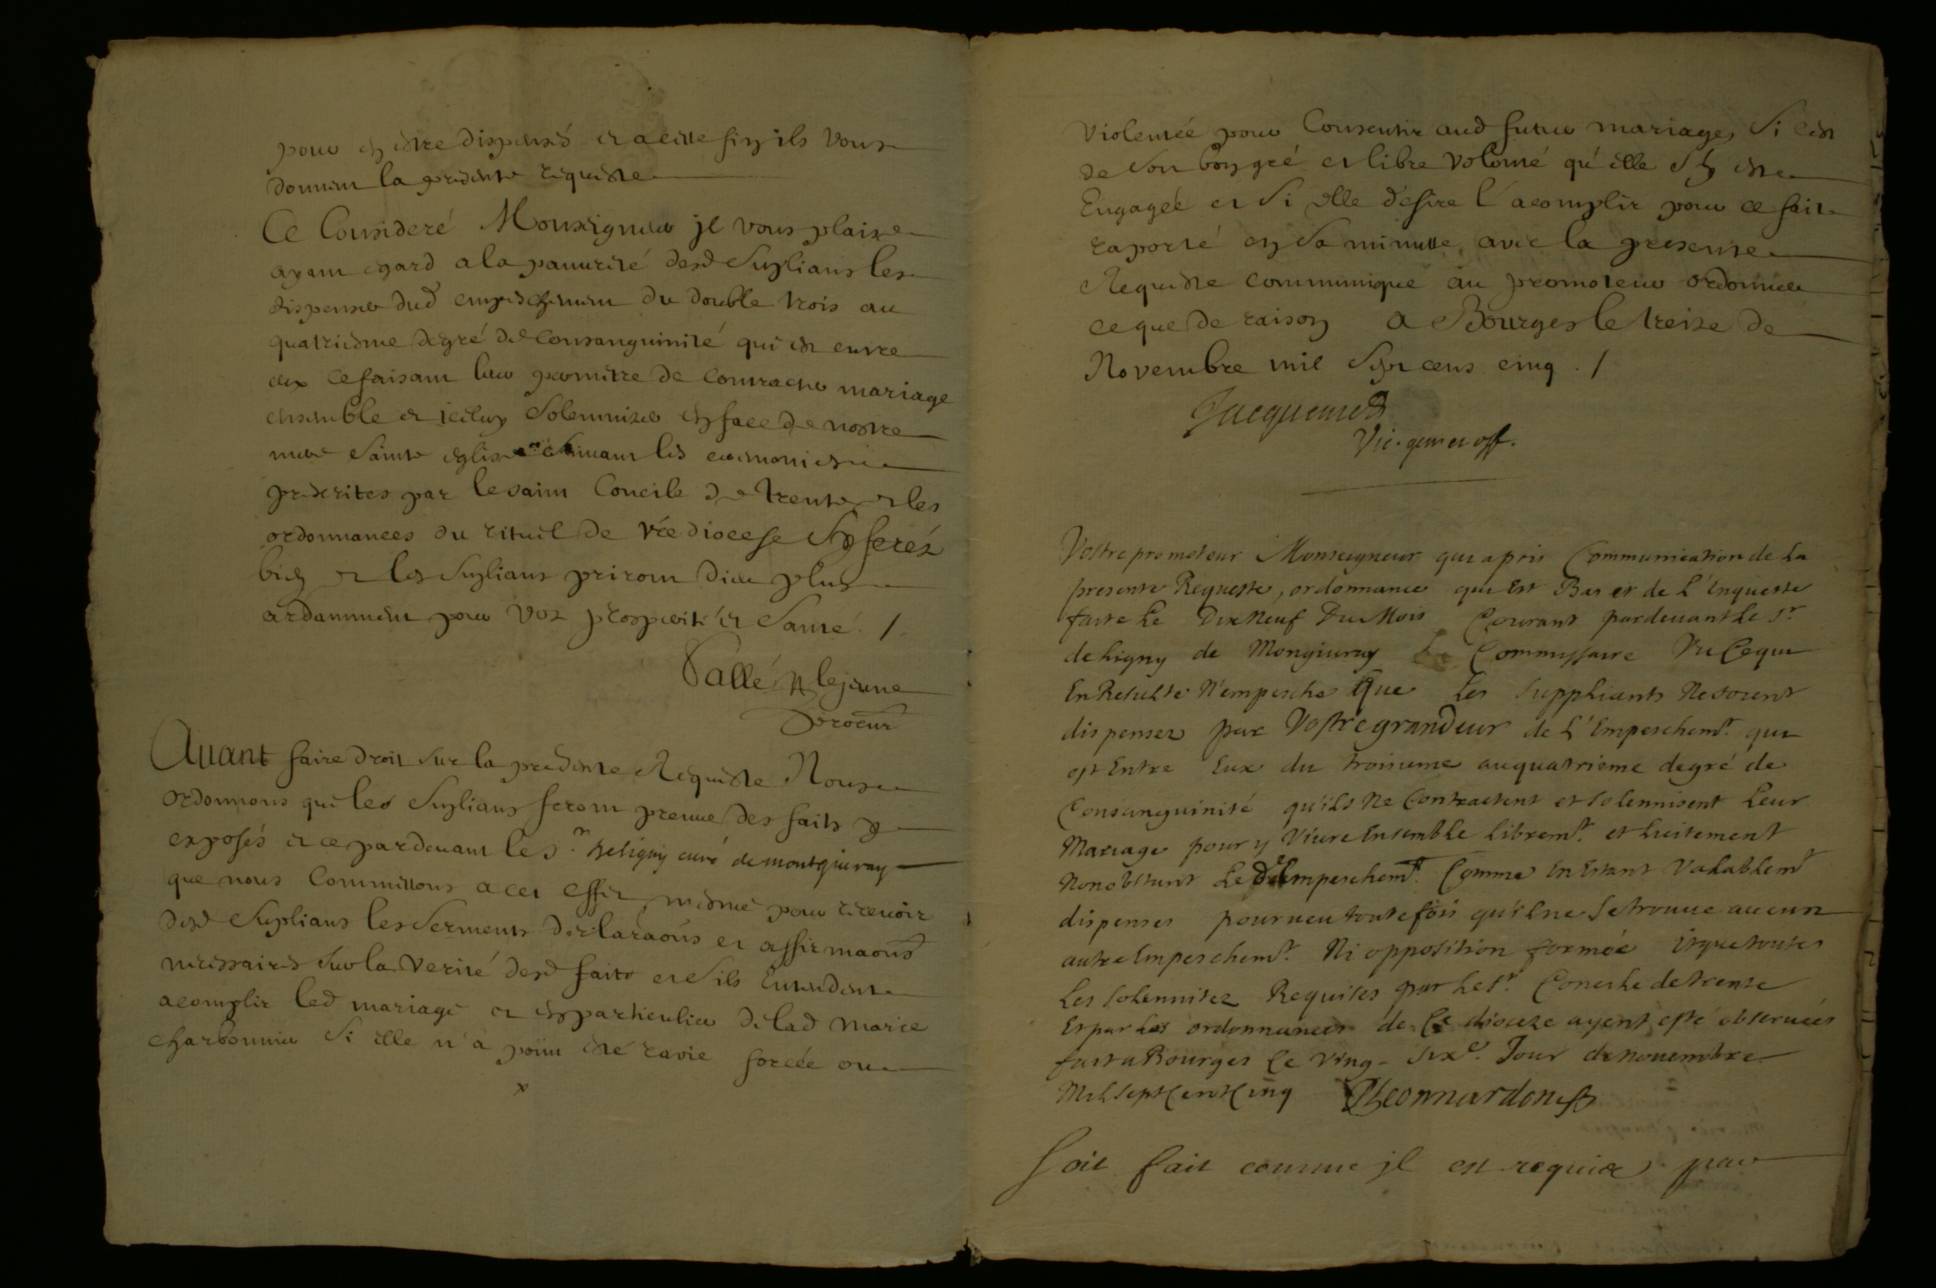 pour en estre dispensés et a cette fin ils vous
donnent la presente requeste
Ce Consideré Monseigneur jl vous plaise
ayant egard a la pauureté desd Suplians les
dispenser dud empeschement du double trois au
quatriesme degré de consanguinité qui est entre
eux ce faisant leur permettre de contracter mariage
ensemble et iceluy Solemniser en face de nostre
mere Sainte eglise Suiuant les ceremonies
prescrites par le saint Concile de trente et les
ordonnances du rituel de vre diocese Sy ferés
bien et les Suplians priront dieu plus
ardamment pour vos prosperité et Santé ./.
Vallé lejeune
procur
Auant faire droit Sur la presente Requeste Nous
ordonnons que les Suplians feront preuue des faits y
exposés et ce pardeuant le Sr. deligny curé de montgiuray
que nous Commettons a cet effet mesme pour receuoir
desd Suplians les Serments declaraons et affirmaons
necessaires Sur la verité desd faits et Sils Entendent
acomplir led mariage et en particulier de lad Marie
charbonnier Si elle n'a point esté rauie forcée ou
x
violentée pour Consentir aud futur mariage, Si cest
de Son bon gré et libre volonté qu'elle S'y est
Engagée et Si elle desire l'acomplir pour ce fait
raporté en Sa minutte, auec la presente
Requeste communiqué au promoteur ordonner
ce que de raison a Bourges le treize de
Novembre mil Sept cens cinq ./
Jacquemet
Vic. gen et off.
Vostre promoteur Monseigneur qui apris Communication de La
presente Requeste, ordonnance qui Est Bas et de L'Enqueste
faite Le Dix Neuf Du Mois Courant pardeuant Le Sr
de Ligny de Mongiuray Commissaire Vu Ce qui
En Resulte N'empesche Que Les Suppliants Ne soient
dispensez par Vostre grandeur de L'Empeschemt. qui
est Entre Eux du troisieme au quatrieme degré de
Consanguinité qu'ils Ne Contractent et solennisent Leur
Mariage pour y Viure Ensemble Libremt. et Licitement
Nonobstant Led Empeschemt. Comme En Estant Valablemt
dispenses pourueu toutefois qu'il ne se trouue aucun
autre Empeschemt. Ni opposition formée et que toutes
Les solennitez Requises par Le St. Concile de trente
Et par Les ordonnances de Ce diocize ayent esté obseruées
fait a Bourges Ce Ving-Sixe. Jour de nouembre
Mil sept Cent Cinq Leonnardon
Soit fait comme jl est requis par